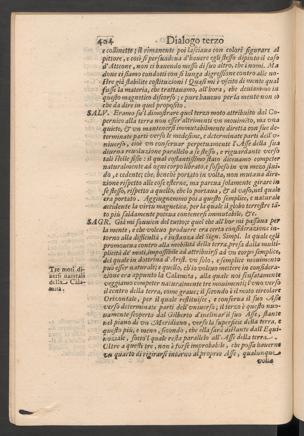 404 Dialogo terzo
e collinette; il rimanente poi lasciava con colori figurare al
pittore, e così si persuadeva d'havere egli stesso dipinto il caso
d'Atteone, non ci havendo messo di suo altro, che i nomi. Ma
dove ci siamo condotti con sì lunga digressione contro alle no-
stre già stabilite costituzioni? Quasi mi è uscito di mente qual
fusse la materia, che trattavamo, all'hora, che deviammo in
questo magnetico discorso; e pure havevo per la mente non so
che da dire in quel proposito.
SALV. Eramo su'l dimostrare quel terzo moto attribuito dal Co-
pernico alla terra non esser altrimenti un movimento, ma una
quiete, & un mantenersi immutabilmente diretta con sue de-
terminate parti verso le medesime, e determinate parti dell'u-
niverso, cioè un conservar perpetuamente l'Asse della sua
diurna revoluzione parallelo a se stesso, e riguardante verso
tali stelle fisse: il qual costantissimo stato dicevamo competer
naturalmente ad ogni corpo librato, e sospeso in un mezo flui-
do, e cedente; che, benchè portato in volta, non mutava dire-
zione rispetto alle cose esterne, ma pareva solamente girare in
se stesso, rispetto a quello, che lo portava, & al vaso, nel quale
era portato. Aggiugnemmo poi a questo semplice, e naturale
accidente la virtù magnetica, per la quale il globo terrestre tã-
to più saldamente poteva contenersi immutabile, &c.
SAGR. Già mi sovvien del tutto; e quel che all'hor mi passava per
la mente, e che volevo produrre era certa considerazione in-
torno alla difficoltà, e instanza del Sign. Simpl. la quale egli
promoveva contro alla mobilità della terra, presa dalla multi-
plicità de' moti, impossibile ad attribuirsi ad un corpo semplice,
del quale in dottrina d'Arist. un solo, e semplice movimento
può esser naturale; e quello, ch'io volevo mettere in considera-
zione era appunto la Calamita, alla quale noi sensatamente
veggiamo competer naturalmente tre movimenti; l'uno verso
il centro della terra, come grave; il secondo è il moto circolare
Orizontale, per il quale restituisce, e conserva il suo Asse
verso determinate parti dell'universo; il terzo è questo nuova-
mente scoperto dal Gilberto d'inclinar il suo Asse, stante
nel piano di un Meridiano, verso la superficie della terra, e
questo più, e meno, secondo, che ella sarà distante dall'Equi-
noziale, sotto'l quale resta parallelo all'Asse della terra.
Oltre a questi tre, non è forse improbabile, che possa haverne
un quarto di rigirarsi intorno al proprio Asse, qualunque
volta
Tre moti di-
versi naturali
della Cala-
mita.